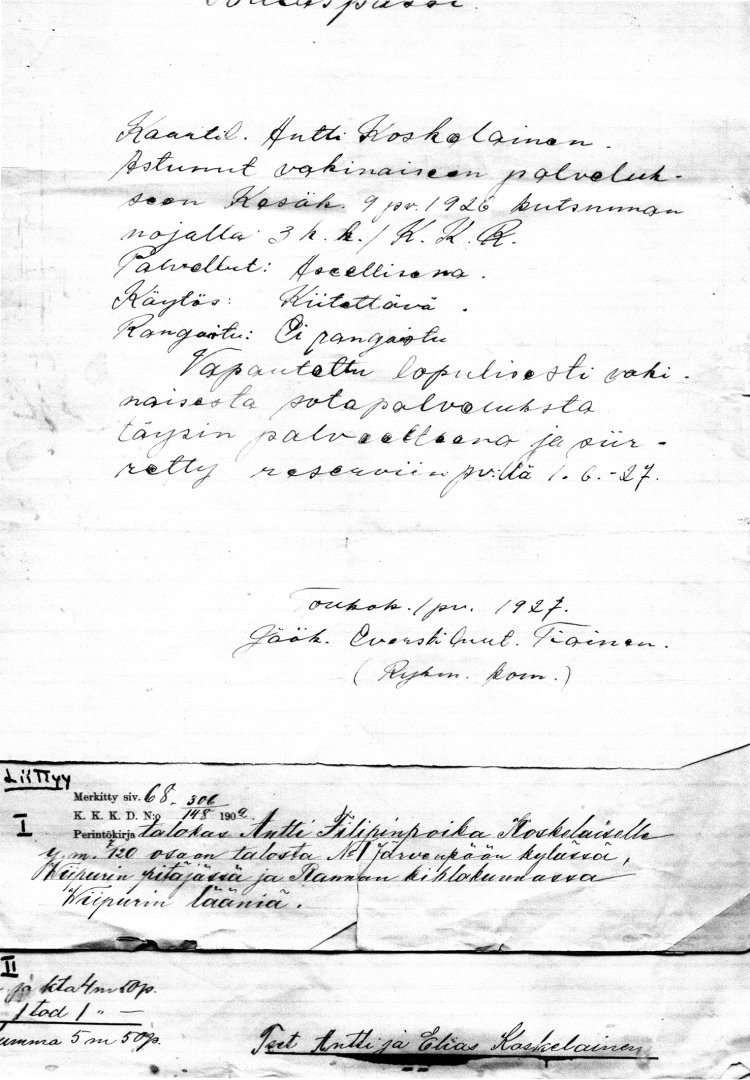 Kaartil. Antti Koskelainen.
Astunut vakinaiseen palveluk-
seen Kesäk. 9 pv. 1926 kutsunnan
nojalla 3 k.k./K.K.R.
Palvellut: Aseellisena.
Käytös: Kiitettävä.
Rangaistu: Ei rangaistu
Vapautettu lopulisesti vaki-
naisesta sotapalveluksta
täysin palvelleena ja siir-
retty reserviin pv:llä 1.6.-27.
Toukok. 1 pv. 1927.
Jääk. Everstiluut. Tiainen.
(Rykm. kom.)
Liittyy
Merkitty siv. 68.
I K. K. K. D. N:o 306/148 1902.
Perintökirja talokas Antti Filipinpoika Koskelaiselle
y.m. 7/120 osaan talosta No 1 Järvenpään kylässä,
Wiipurin pitäjässä ja Rannan kihlakunnassa
Wiipurin lääniä.
II
ja kta 4 m 50 p.
1 tod 1 " —
umma 5 m 50 p.
Antti ja Elias Koskelainen